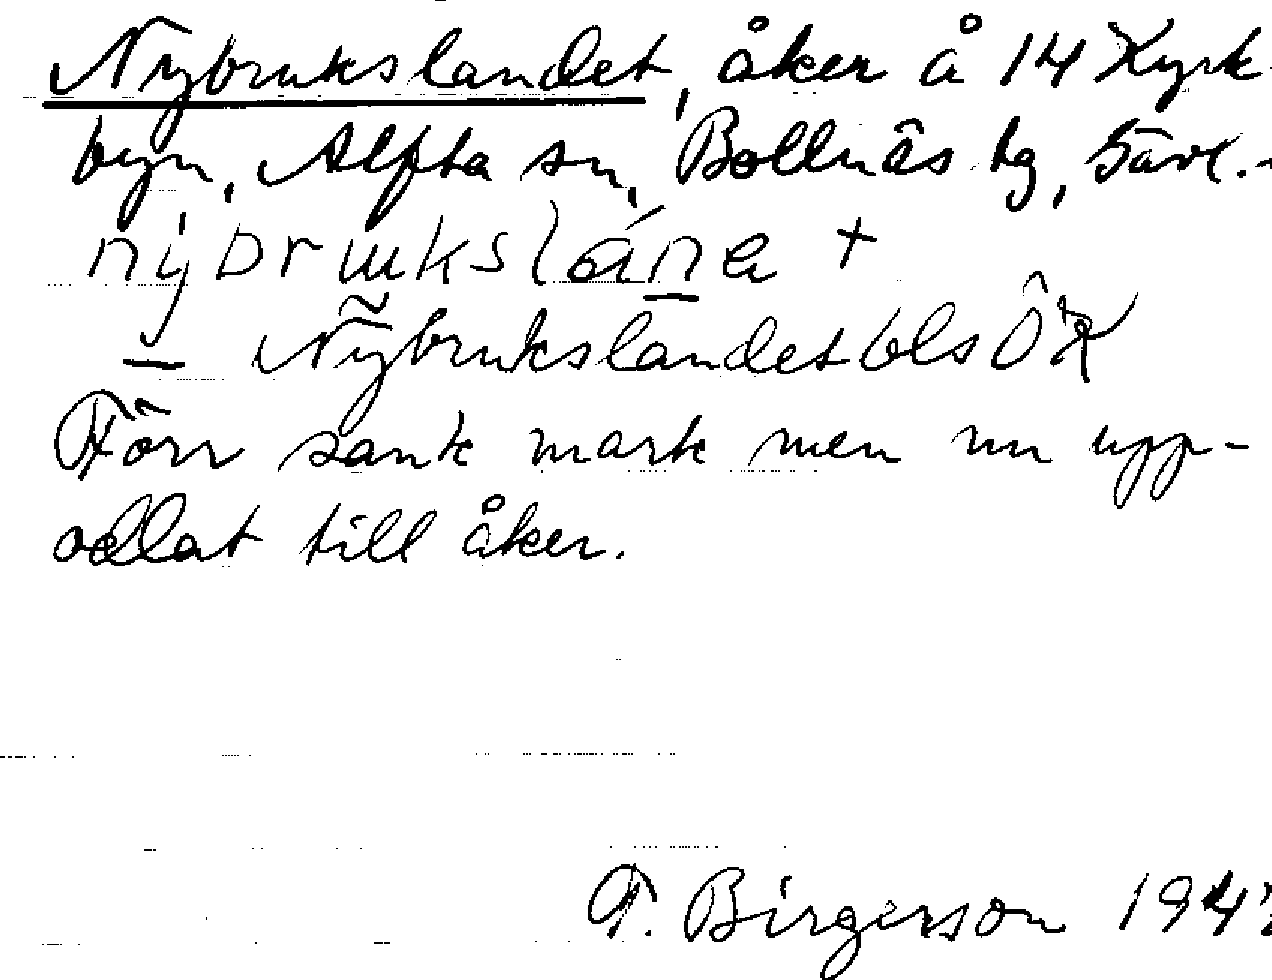 Nybrukslandet, åker å 14 Kyrk-
byn, Alfta sn, Bollnäs tg, Gävl.-
nybrukslána +
– Nybrukslandet bls ÖK
Förr sank mark men nu upp-
odlat till åker.
F. Birgerson 194